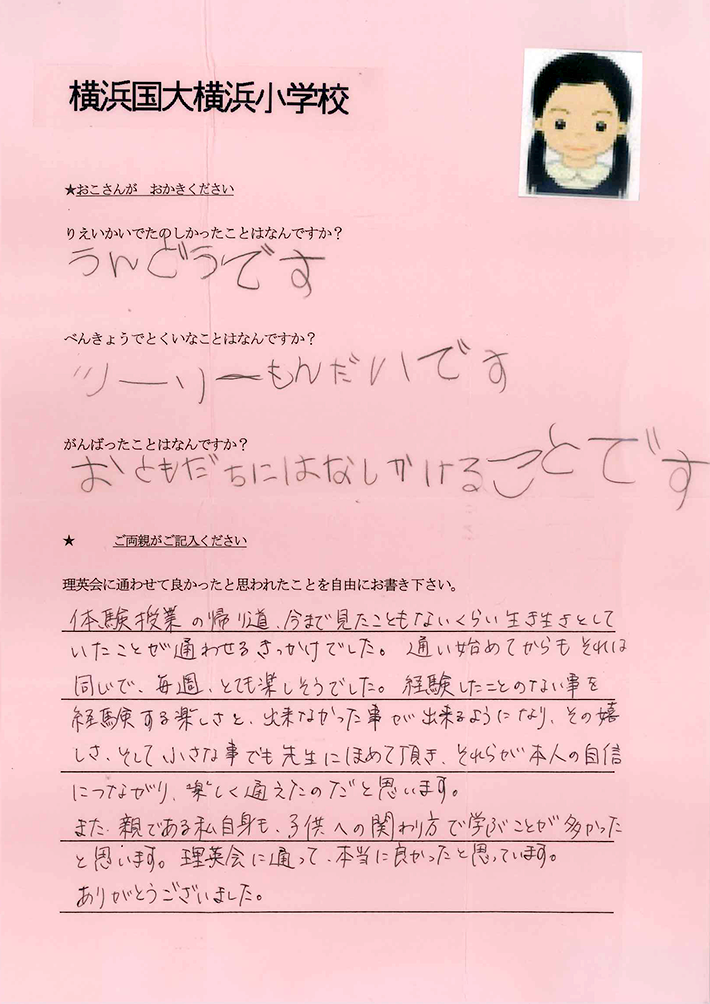 横浜国大横浜小学校
★おこさんが　おかきください
りえいかいでたのしかったことはなんですか？
うんどうです
べんきょうでとくいなことはなんですか？
ツーリーもんだいです
がんばったことはなんですか？
おともだちにはなしかけることです
★　ご両親がご記入ください
理英会に通わせて良かったと思われたことを自由にお書き下さい。
体験授業の帰り道、今まで見たこともないくらい生き生きとして
いたことが通わせるきっかけでした。通い始めてからもそれは
同じで、毎週、とても楽しそうでした。経験したことのない事を
経験する楽しさと、出来なかった事が出来るようになり、その嬉
しさ、そして小さな事でも先生にほめて頂き、それらが本人の自信
につながり、楽しく通えたのだと思います。
また、親である私自身も、子供への関わり方で学ぶことが多かった
と思います。理英会に通って、本当に良かったと思っています。
ありがとうございました。